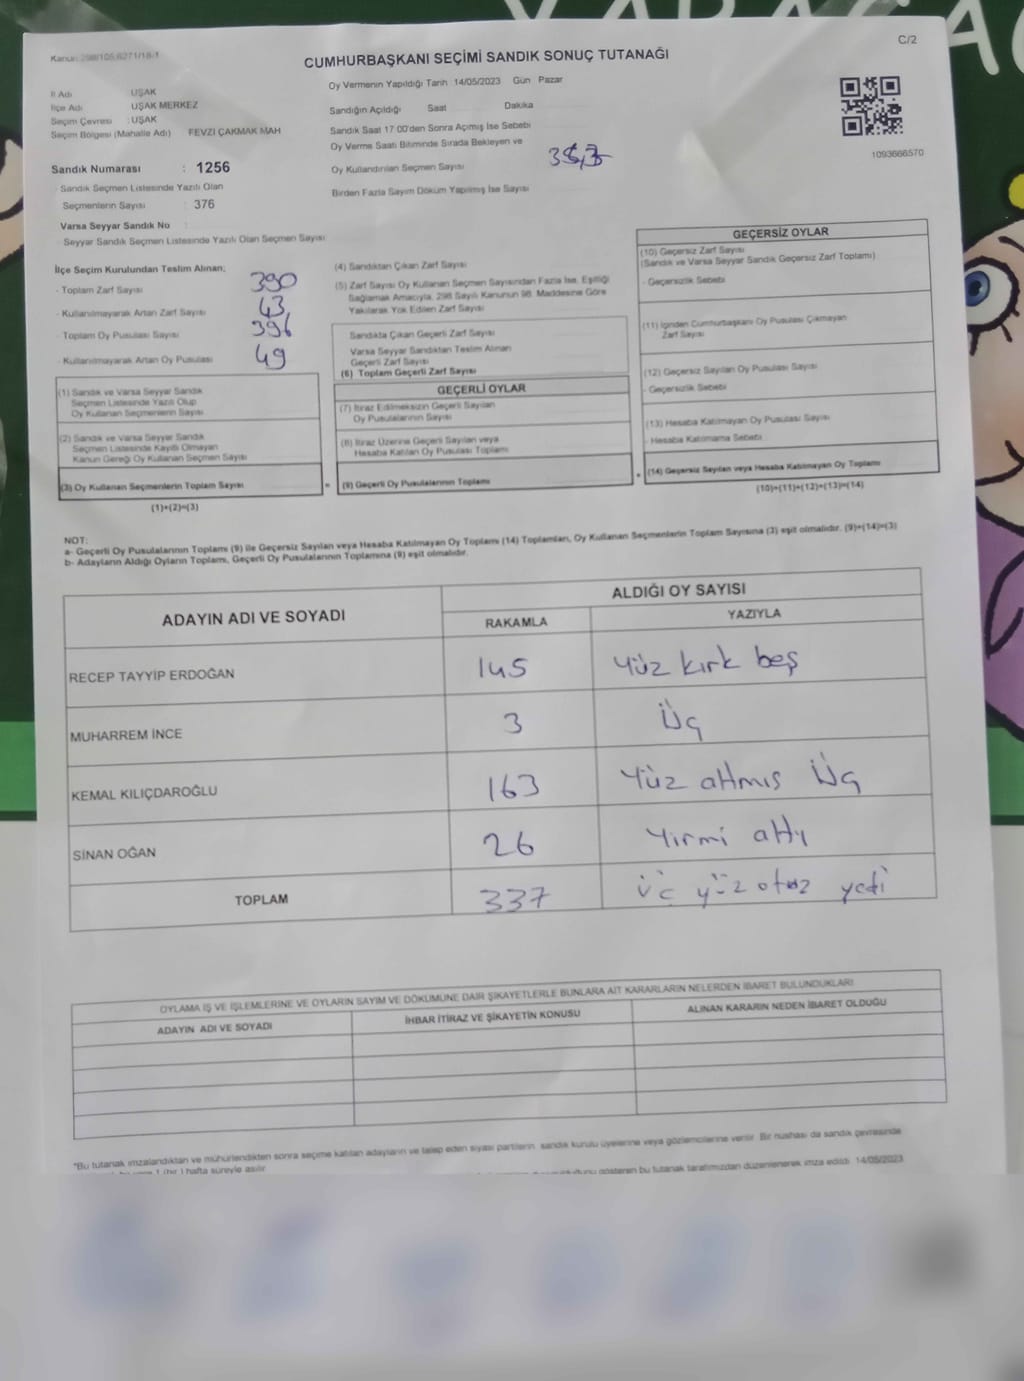 YABACA
Kanun: 298/105,6271/18-1
C/2
CUMHURBAŞKANI SEÇİMİ SANDIK SONUÇ TUTANAĞI
İl Adı UŞAK
İlçe Adı UŞAK MERKEZ
Seçim Çevresi : UŞAK
Seçim Bölgesi (Mahalle Adı) FEVZİ ÇAKMAK MAH
Sandık Numarası : 1256
- Sandık Seçmen Listesinde Yazılı Olan
Seçmenlerin Sayısı : 376
Varsa Seyyar Sandık No
- Seyyar Sandık Seçmen Listesinde Yazılı Olan Seçmen Sayısı
Oy Vermenin Yapıldığı Tarih 14/05/2023 Gün Pazar
Sandığın Açıldığı Saat Dakika
Sandık Saat 17:00'den Sonra Açımış İse Sebebi
Oy Verme Saati Bitiminde Sırada Bekleyen ve
Oy Kullandırılan Seçmen Sayısı
Birden Fazla Sayım Döküm Yapılmış İse Sayısı
1093666570
İlçe Seçim Kurulundan Teslim Alınan;
- Toplam Zarf Sayısı 390
- Kullanılmayarak Artan Zarf Sayısı 43
- Toplam Oy Pusulası Sayısı 396
- Kullanılmayarak Artan Oy Pusulası 49
(1) Sandık ve Varsa Seyyar Sandık
Seçmen Listesinde Yazılı Olup
Oy Kullanan Seçmenlerin Sayısı
(2) Sandık ve Varsa Seyyar Sandık
Seçmen Listesinde Kayıtlı Olmayan
Kanun Gereği Oy Kullanan Seçmen Sayısı
(3) Oy Kullanan Seçmenlerin Toplam Sayısı
(1)+(2)=(3)
(4) Sandıktan Çıkan Zarf Sayısı
(5) Zarf Sayısı Oy Kullanan Seçmen Sayısından Fazla İse, Eşitliği
Sağlamak Amacıyla, 298 Sayılı Kanunun 98. Maddesine Göre
Yakılarak Yok Edilen Zarf Sayısı
Sandıkta Çıkan Geçerli Zarf Sayısı
Varsa Seyyar Sandıktan Teslim Alınan
Geçerli Zarf Sayısı
(6) Toplam Geçerli Zarf Sayısı
GEÇERLİ OYLAR
(7) İtiraz Edilmeksizin Geçerli Sayılan
Oy Pusulalarının Sayısı
(8) İtiraz Üzerine Geçerli Sayılan veya
Hesaba Katılan Oy Pusulası Toplamı
= (9) Geçerli Oy Pusulalarının Toplamı
GEÇERSİZ OYLAR
(10) Geçersiz Zarf Sayısı
(Sandık ve Varsa Seyyar Sandık Geçersiz Zarf Toplamı)
- Geçersizlik Sebebi
(11) İçinden Cumhurbaşkanı Oy Pusulası Çıkmayan
Zarf Sayısı
(12) Geçersiz Sayılan Oy Pusulası Sayısı
- Geçersizlik Sebebi
(13) Hesaba Katılmayan Oy Pusulası Sayısı
- Hesaba Katılmama Sebebi
+ (14) Geçersiz Sayılan veya Hesaba Katılmayan Oy Toplamı
(10)+(11)+(12)+(13)=(14)
NOT:
a- Geçerli Oy Pusulalarının Toplamı (9) ile Geçersiz Sayılan veya Hesaba Katılmayan Oy Toplamı (14) Toplamları, Oy Kullanan Seçmenlerin Toplam Sayısına (3) eşit olmalıdır. (9)+(14)=(3)
b- Adayların Aldığı Oyların Toplamı, Geçerli Oy Pusulalarının Toplamına (9) eşit olmalıdır.
ADAYIN ADI VE SOYADI ALDIĞI OY SAYISI
RAKAMLA YAZIYLA
RECEP TAYYİP ERDOĞAN 145 Yüz kırk beş
MUHARREM İNCE 3 Üç
KEMAL KILIÇDAROĞLU 163 Yüz altmış Üç
SİNAN OĞAN 26 Yirmi altı
TOPLAM 337 üç yüz otuz yedi
OYLAMA İŞ VE İŞLEMLERİNE VE OYLARIN SAYIM VE DÖKÜMÜNE DAİR ŞİKAYETLERLE BUNLARA AİT KARARLARIN NELERDEN İBARET BULUNDUKLARI
ADAYIN ADI VE SOYADI İHBAR İTİRAZ VE ŞİKAYETİN KONUSU ALINAN KARARIN NEDEN İBARET OLDUĞU
"Bu tutanak imzalandıktan ve mühürlendikten sonra seçime katılan adayların ve talep eden siyasi partilerin sandık kurulu üyelerine veya gözlemcilerine verilir. Bir nüshası da sandık çevresinde
1 (bir) hafta süreyle asılır. gösteren bu tutanak tarafımızdan düzenlenerek imza edildi. 14/05/2023